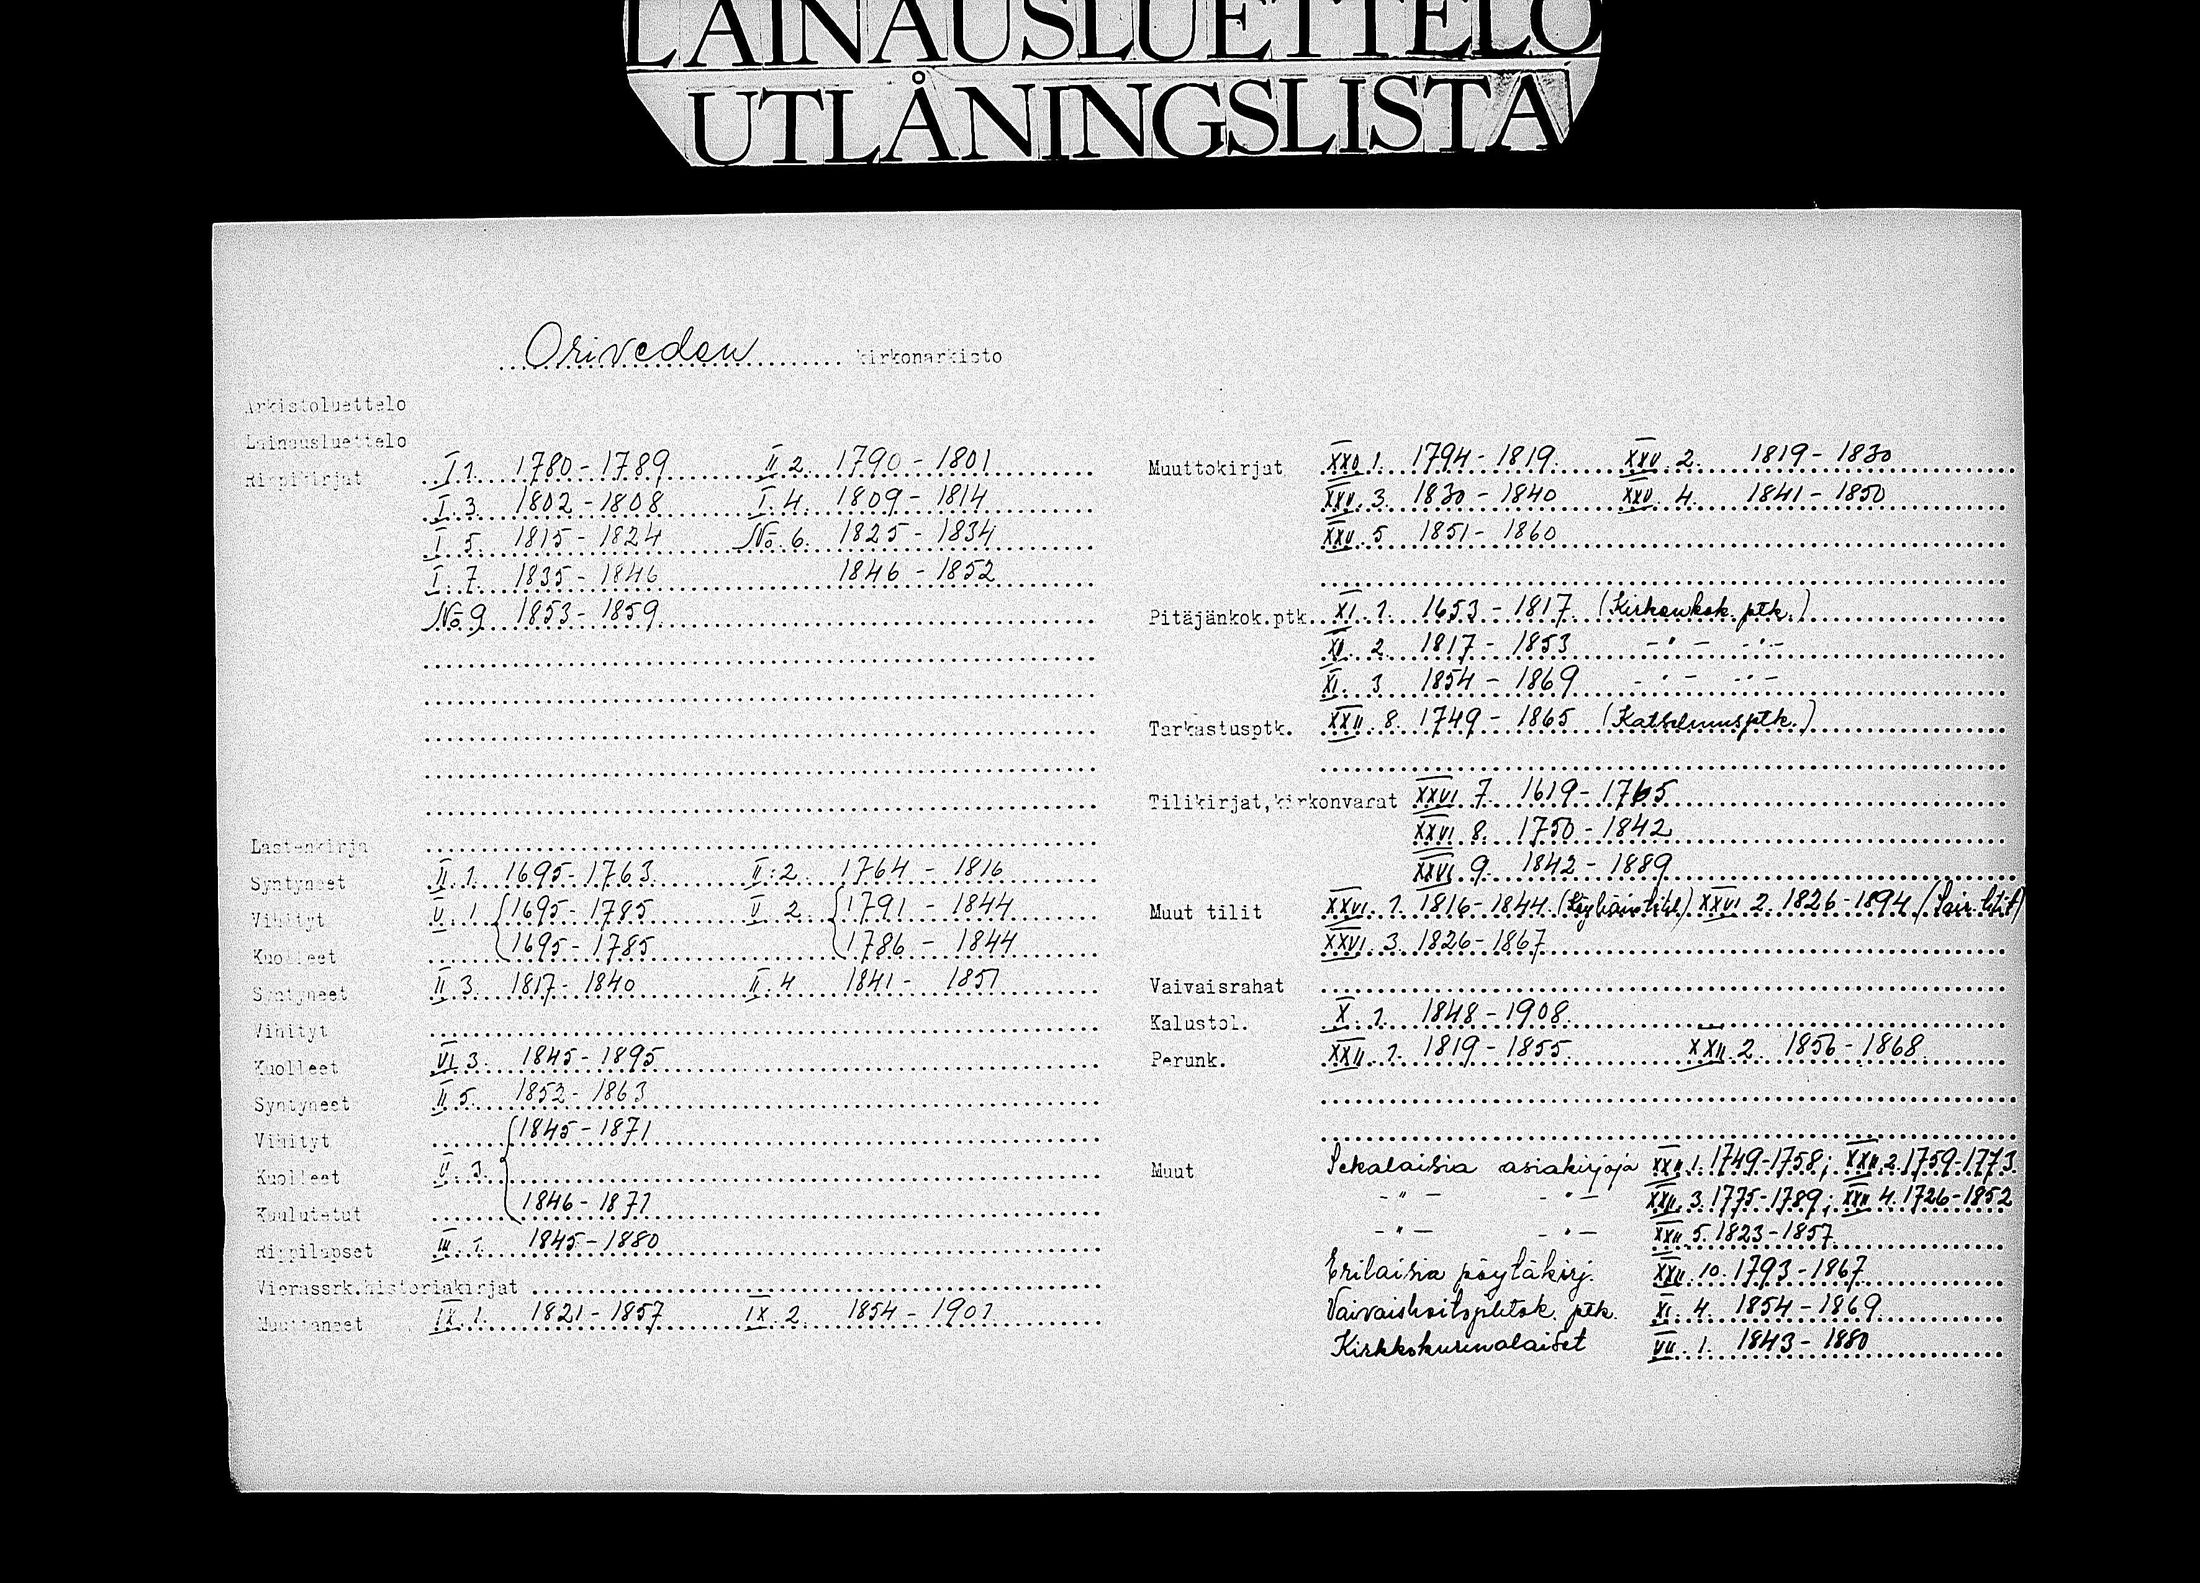 LAINAUSLUETTELO
UTLÅNINGSLISTA
Oriveden kirkonarkisto
Arkistoluettelo
Lainausluettelo
Rippikirjat I 1. 1780-1789 II 2. 1790-1801
I. 3. 1802-1808 I. 4. 1809-1814
I 5. 1815-1824 No 6. 1825-1834
I. 7. 1835-1846 1846-1852
No 9 1853-1859
Lastenkirja
Syntyneet II 1. 1695-1763 II: 2. 1764-1816
Vihityt II. 1. 1695-1785 II 2. 1791-1844
Kuolleet 1695-1785 1786-1844
Syntyneet II 3. 1817-1840 II. 4 1841-1851
Vihityt
Kuolleet VI 3. 1845-1895
Syntyneet II 5. 1852-1863
Vihityt 1845-1871
Kuolleet II. 3.
Kuulutetut 1846-1871
Rippilapset III. 1. 1845-1880
Vierassrk.historiakirjat
Muuttaneet IX. 1. 1821-1857 IX. 2. 1854-1901
Muuttokirjat XXV. 1. 1794-1819. XXV. 2. 1819-1830
XXV. 3. 1830-1840 XXV. 4. 1841-1850
XXV. 5 1851-1860
Pitäjänkok.ptk. XI. 1. 1653-1817. (Kirkonkok. ptk.)
XI. 2. 1817-1853 -"- -"-
XI. 3 1854-1869 -"- -"-
Tarkastusptk. XXII. 8. 1749-1865 (Katselmusptk.)
Tilikirjat,kirkonvarat XXVI. 7. 1619-1765
XXVI. 8. 1750-1842
XXVI. 9. 1842-1889
Muut tilit XXVI. 1. 1816-1844. XXVI 2. 1826-1894.
XXVI. 3. 1826-1867
Vaivaisrahat
Kalustol. X. 1. 1848-1908.
Perunk. XXII. 1. 1819-1855. XXII. 2. 1856-1868
Muut Sekalaisia asiakirjoja XXII. 1. 1749-1758; XXII. 2. 1759-1773.
-"- -"- XXII. 3. 1775-1789; XXII. 4. 1726-1852
-"- -"- XXII 5. 1823-1857
Erilaisia pöytäkirj. XXII. 10. 1793-1867
Vaivaishoit. ptk. XI. 4. 1854-1869
Kirkkokurinalaiset VII. 1. 1843-1880